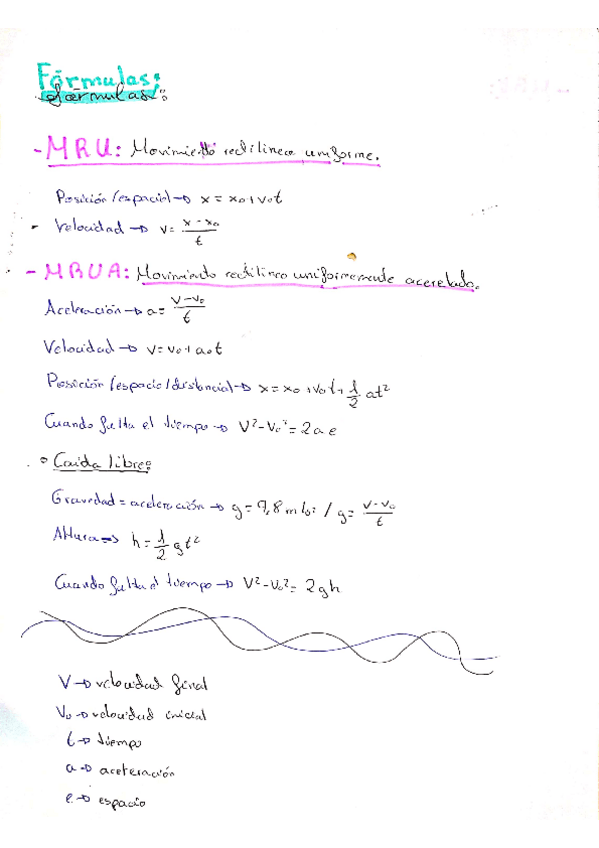 Fórmulas:
fórmulas:
- MRU: Movimiento rectilineo uniforme.
Posición/espacio → x = x₀ + v₀t
- Velocidad → v = (x - x₀)/t
- MRUA: Movimiento rectilineo uniformemente acerelado.
Aceleración → a = (v - v₀)/t
Velocidad → v = v₀ + a₀t
Posición/espacio/distancia → x = x₀ + v₀t + 1/2 at²
Cuando falta el tiempo → V² - V₀² = 2 a e
Caida libre:
Gravedad = aceleración → g = 9,8 m/s² / g = (v - v₀)/t
Altura → h = 1/2 gt²
Cuando falta el tiempo → V² - V₀² = 2gh
V → velocidad final
V₀ → velocidad inicial
t → tiempo
a → aceleración
e → espacio